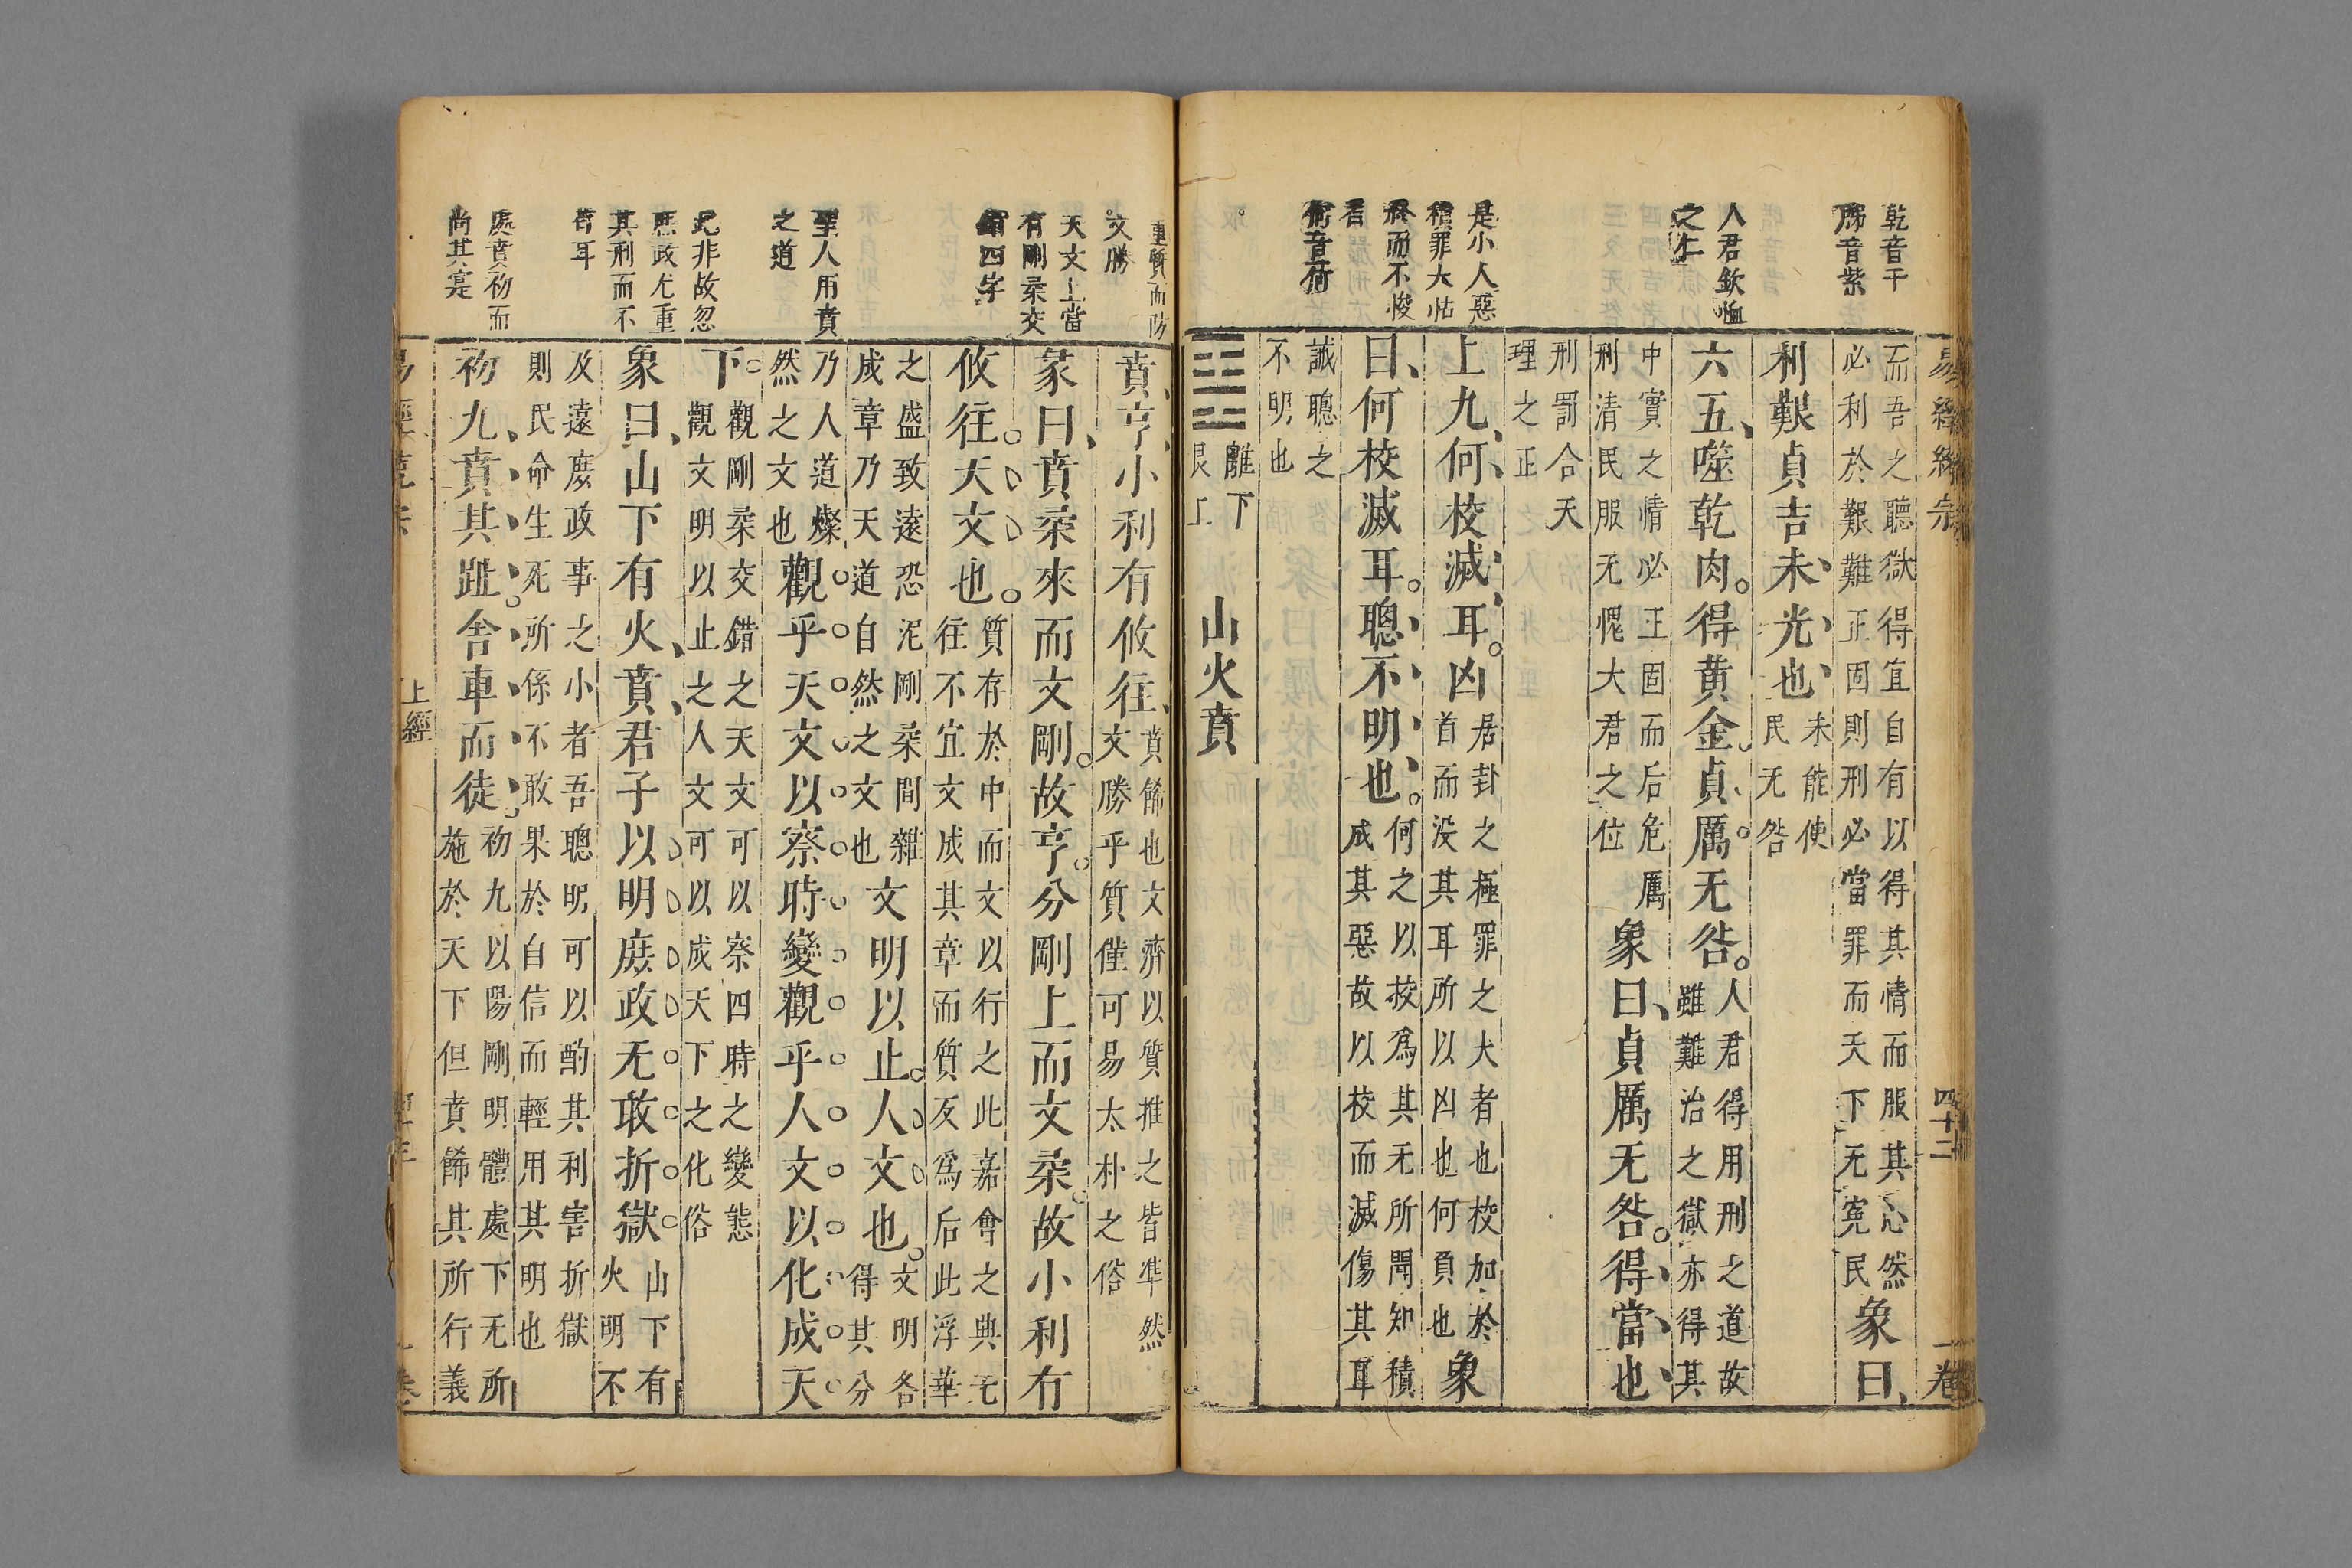 乾音干
胏音紫
人君欽恤
之仁
是小人惡
積罪大怙
終而不悛
者
何音荷
而吾之聽獄得宜自有以得其情而服其心然
必利於艱難正固則刑必當罪而天下无寃民
象曰
利艱貞吉未光也
未能使
民无咎
六五噬乾肉得黄金貞厲无咎
人君得用刑之道故
雖難治之獄亦得其
中實之情必正固而后危厲
刑清民服无愧大君之位
象曰貞厲无咎得當也
刑罰合天
理之正
上九何校滅耳凶
居卦之極罪之大者也校加於
首而没其耳所以凶也何負也
象
曰何校滅耳聰不明也
何之以校爲其无所聞知積
成其惡故以校而滅傷其耳
誠聰之
不明也
離下
艮上
山火賁
四十二
一卷
重質而防
文勝
天文上當
有剛柔交
錯四字
聖人用賁
之道
此非故忽
庶政尤重
其刑而不
苟耳
處賁初而
尚其寔
賁亨小利有攸往
賁餙也文濟以質推之皆準然
文勝乎質僅可易太朴之俗
彖曰賁柔來而文剛故亨分剛上而文柔故小利有
攸往天文也
質存於中而文以行之此嘉會之典无
往不宜文成其章而質反爲后此浮華
之盛致遠恐泥剛柔間雜
成章乃天道自然之文也
文明以止人文也
文明各
得其分
乃人道燦
然之文也
觀乎天文以察時變觀乎人文以化成天
下
觀剛柔交錯之天文可以察四時之變態
觀文明以止之人文可以成天下之化俗
象曰山下有火賁君子以明庶政无敢折獄
山下有
火明不
及遠庶政事之小者吾聰明可以酌其利害折獄
則民命生死所係不敢果於自信而輕用其明也
初九賁其趾舍車而徒
初九以陽剛明體處下无所
施於天下但賁餙其所行義
上經